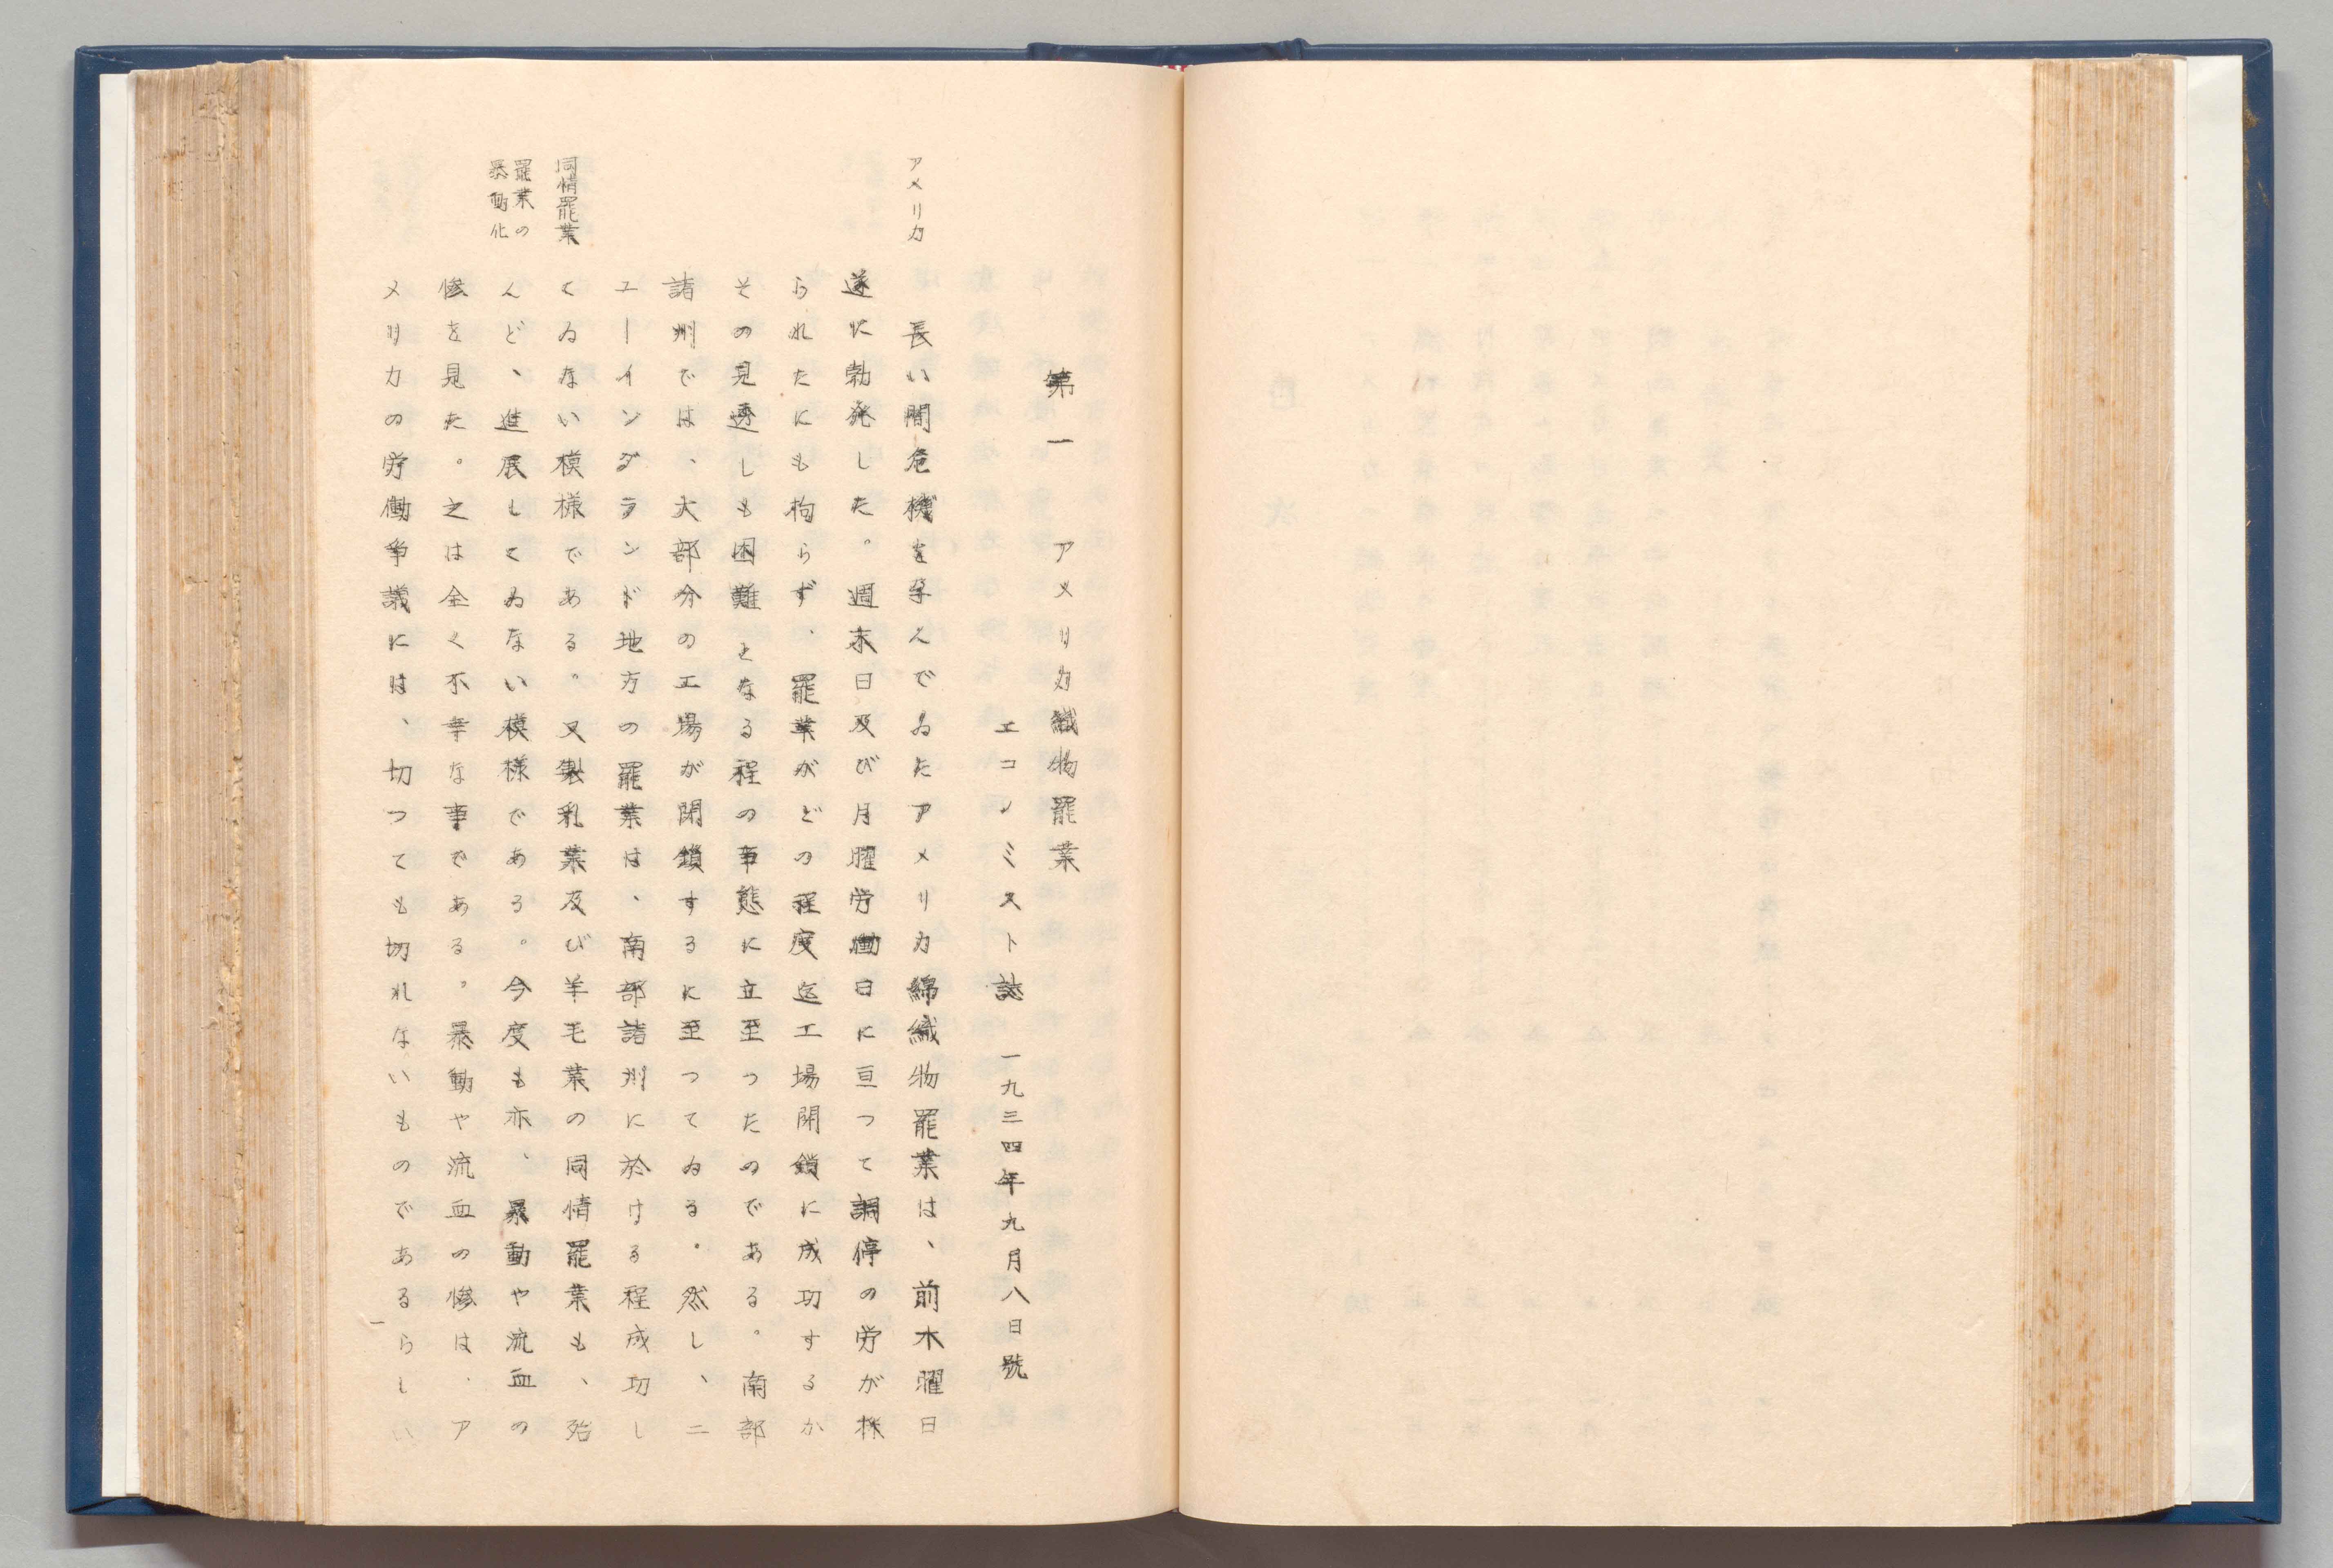 第一　アメリカ織物罷業
エコノミスト誌　一九三四年九月八日號
アメリカ
長い間危機を孕んでゐたアメリカ綿織物罷業は、前木曜日
遂に勃発した。週末日及び月曜労働日に亘つて調停の労が採
られたにも拘らず、罷業がどの程度迄工場閉鎖に成功するか
その見透しも困難となる程の事態に立至つたのである。南部
諸州では、大部分の工場が閉鎖するに至つてゐる。然し、ニ
ユーイングランド地方の罷業は、南部諸州に於ける程成功し
同情罷業
てゐない模様である。又製乳業及び羊毛業の同情罷業も、殆
罷業の
暴動化
んど、進展してゐない模様である。今度も亦、暴動や流血の
惨を見た。之は全く不幸な事である。暴動や流血の惨は、ア
メリカの労働争議には、切つても切れないものであるらしい
一